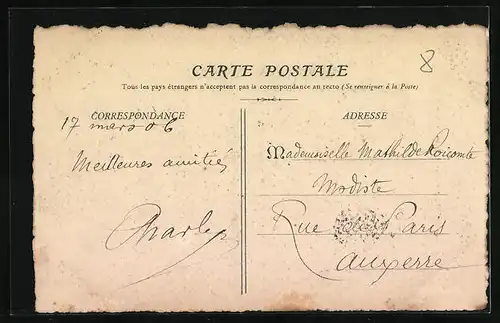 8
CARTE POSTALE
Tous les pays étrangers n'acceptent pas la correspondance au recto (Se renseigner à la Poste)
CORRESPONDANCE
17 mars 06
Meilleures amitiés
Charles
ADRESSE
Mademoiselle Mathilde
Modiste
Rue de Paris
Auxerre